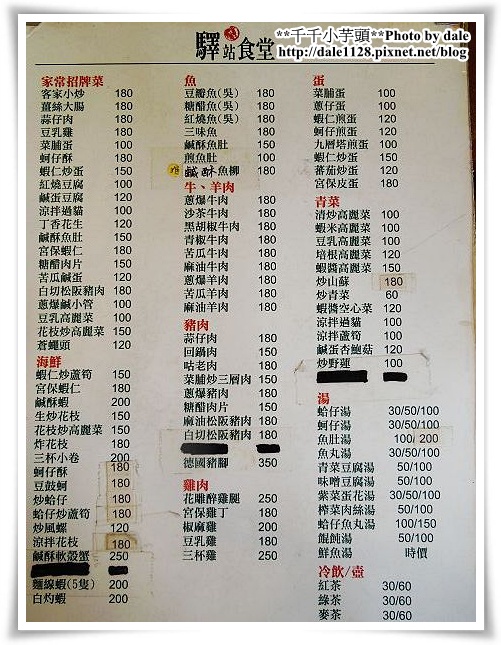 **千千小芋頭**Photo by dale
http://dale1128.pixnet.net/blog
驛站食堂
家常招牌菜
客家小炒 180
薑絲大腸 180
蒜仔肉 180
豆乳雞 180
菜脯蛋 100
蚵仔酥 180
蝦仁炒蛋 150
紅燒豆腐 100
鹹蛋豆腐 150
涼拌過貓 100
丁香花生 120
鹹酥魚肚 150
宮保蝦仁 180
糖醋肉片 150
苦瓜鹹蛋 120
白切松阪豬肉 180
蔥爆鹹小管 100
豆乳高麗菜 100
花枝炒高麗菜 150
蒼蠅頭 120
海鮮
蝦仁炒蘆筍 150
宮保蝦仁 180
鹹酥蝦 200
生炒花枝 150
花枝炒高麗菜 150
炸花枝 180
三杯小卷 200
蚵仔酥 180
豆鼓蚵 180
炒蛤仔 180
蛤仔炒蘆筍 180
炒風螺 120
涼拌花枝 180
鹹酥軟殼蟹 250
麵線蝦(5隻) 200
白灼蝦 200
魚
豆瓣魚(吳) 180
糖醋魚(吳) 180
紅燒魚(吳) 180
三味魚 180
鹹酥魚肚 150
煎魚肚 100
鹹酥魚柳 180
牛、羊肉
蔥爆牛肉 180
沙茶牛肉 180
黑胡椒牛肉 180
青椒牛肉 180
苦瓜牛肉 180
麻油牛肉 180
蔥爆羊肉 180
苦瓜羊肉 180
麻油羊肉 180
豬肉
蒜仔肉 180
回鍋肉 150
咕老肉 180
菜脯炒三層肉 150
蔥爆豬肉 180
糖醋肉片 150
麻油松阪豬肉 180
白切松阪豬肉 180
德國豬腳 350
雞肉
花雕醉雞腿 250
宮保雞丁 180
椒麻雞 200
豆乳雞 180
三杯雞 250
蛋
菜脯蛋 100
蔥仔蛋 100
蝦仁煎蛋 120
蚵仔煎蛋 120
九層塔煎蛋 100
蝦仁炒蛋 150
蕃茄炒蛋 120
宮保皮蛋 180
青菜
清炒高麗菜 100
蝦米高麗菜 100
豆乳高麗菜 100
培根高麗菜 120
蝦醬高麗菜 150
炒山蘇 180
炒青菜 60
蝦醬空心菜 120
涼拌過貓 100
涼拌蘆筍 100
鹹蛋杏鮑菇 120
炒野蓮 100
湯
蛤仔湯 30/50/100
蚵仔湯 30/50/100
魚肚湯 100/200
魚丸湯 30/50/100
青菜豆腐湯 50/100
味噌豆腐湯 50/100
紫菜蛋花湯 30/50/100
榨菜肉絲湯 50/100
蛤仔魚丸湯 100/150
餛飩湯 50/100
鮮魚湯 時價
冷飲/壺
紅茶 30/60
綠茶 30/60
麥茶 30/60